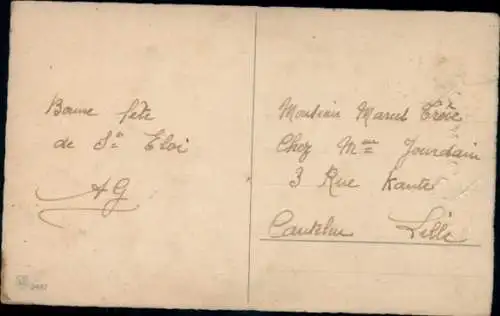 Bonne fête
de St Eloi
AG
Monsieur Marcel Crève
Chez Mme Jourdain
3 Rue Kante
Canteleu Lille